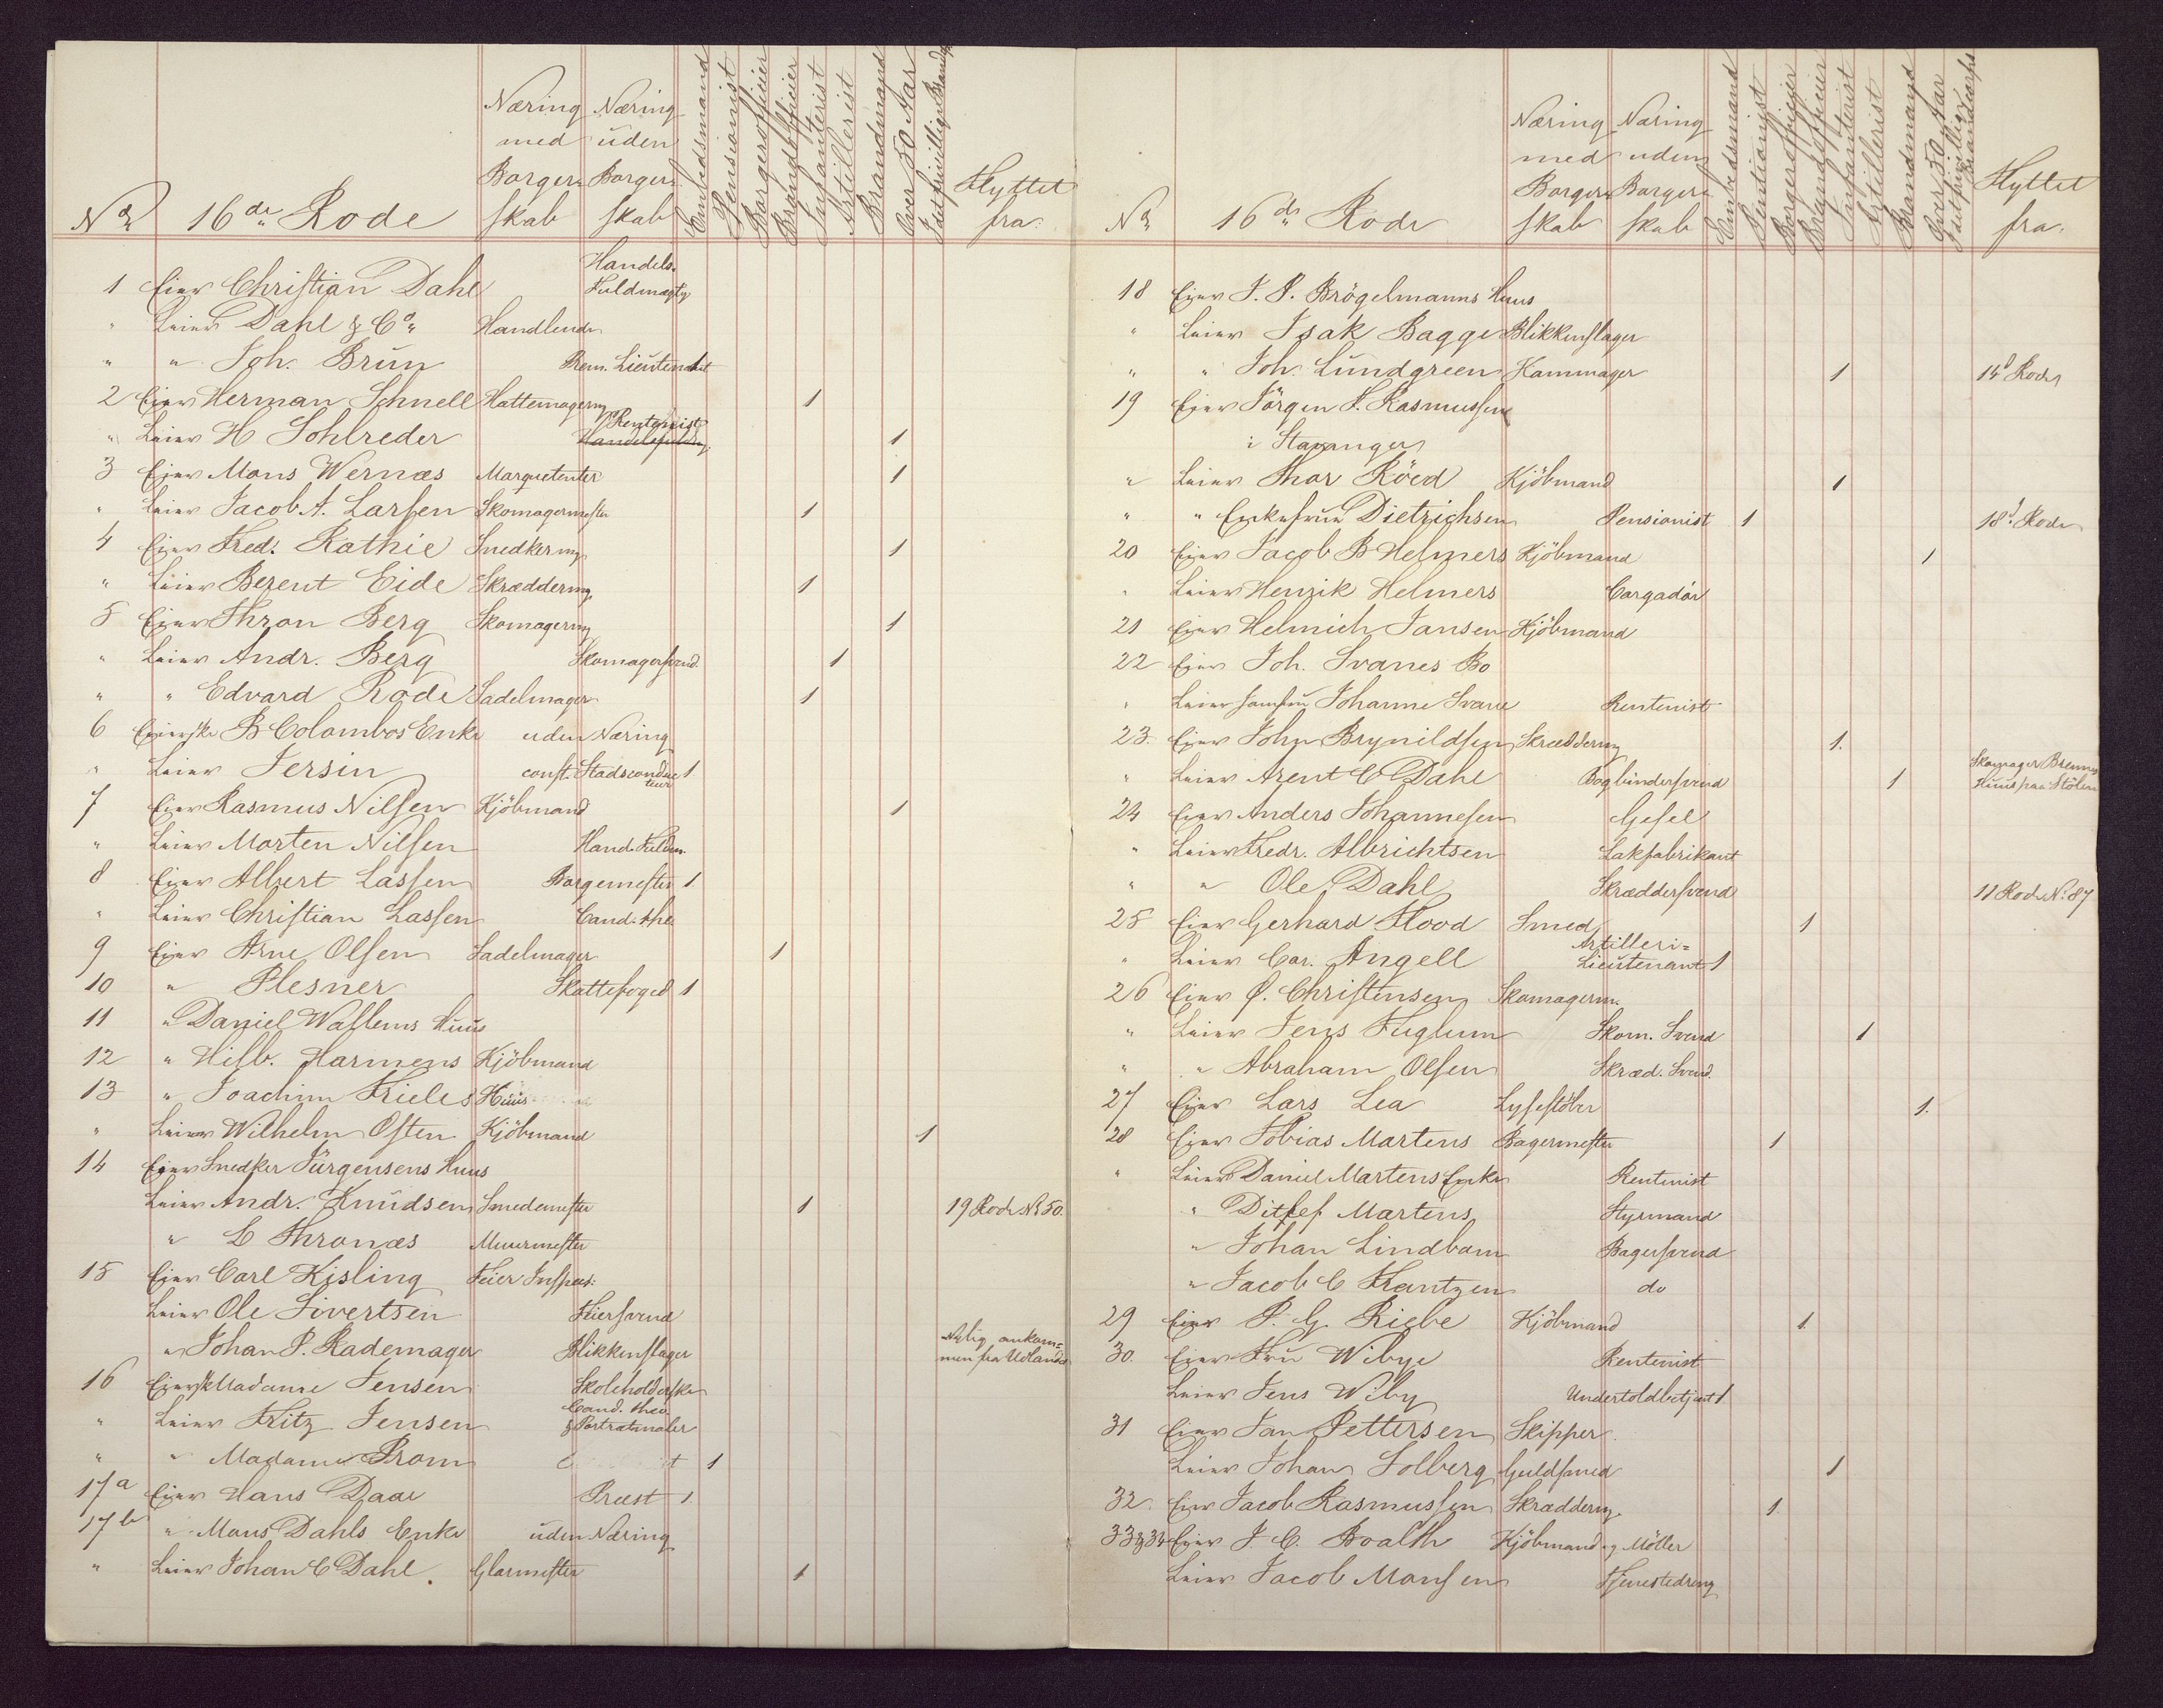 Næring Næring
med uden
Borger= Borger=
skab skab
Embedsmand
Pensionist
Borgerofficier
Brandofficier
Infanterist
Artillerist
Brandmand
Over 50 Aar
Flyttet
fra:
No 16de Rode
1 Eier Christian Dahl Handels. Fuldmægtg
" Leier Dahl & Co Handlende
" " Joh. Brun Prem. Lieutenant 1
2 Eier Herman Schnell Hattemagerm 1
" Leier H Sohlreder Rentenist 1
3 Eier Mons Wernæs Marquetenter 1
" Leier Jacob A. Larsen Skomagermester 1
4 Eier Fred. Rathie Snedkerm 1
" Leier Berent Eide Skrædderm. 1
5 Eier Thron Berg Skomagerm 1
" Leier Andr. Berg Skomagersvend 1
" " Edvard Rode Sadelmager 1
6 Eierske B Colombos Enke uden Næring
" Leier Jersin const. Stadsconduc teur 1
7 Eier Rasmus Nilsen Kjöbmand 1
" Leier Morten Nilsen Hand. Fuldm.
8 Eier Albert Lassen Borgemester 1
" Leier Christian Lassen Cand. the
9 Eier Arne Olsen Sadelmager 1
10 " Plesner Skattefoged 1
11 " Daniel Wallems Huus
12 " Hilb. Harmens Kjöbmand
13 " Joachim Frieles Huus
" Leier Wilhelm Osten Kjöbmand 1
14 Eier Snedker Jürgensens Huus
Leier Andr. Knudsen Smedemester 1 19 Rode No 50.
" L Thronæs Muurmester
15 Eier Carl Kisling Feier Inspect:
Leier Ole Sivertsen Feiersvend
" Johan P. Rademager Blikkenslager Nylig ankom=
men fra Udlandet
16 Eierske Madame Jensen Skoleholderske
" Leier Fritz Jensen Cand. theo. & Portrætmaler
" " Madame Prom 1
17a Eier Hans Daae Præst 1.
17b " Mons Dahls Enke uden Næring
" Leier Johan C Dahl. Glarmester 1
Næring Næring
med uden
Borger= Borger=
skab skab
Embedsmand
Pentionist
Borgerofficier
Brandofficier
Infanterist
Artillerist
Brandmand
Over 50 Aar
Frivillige
Brandcorps
Flyttet
fra:
No 16de Rode
18 Eier J. P. Brögelmanns Huus
" Leier Isak Bagge Blikkenslager
" " Joh. Lundgreen Kammager 1 14d Rode
19 Eier Jörgen F. Rasmussen
i Stavanger
" Leier Thor Röed Kjöbmand 1
" " Enkefrue Dietrichsen Pensionist 1 18d Rode
20 Eier Jacob B Helmers Kjöbmand 1
" Leier Henrik Helmers Cargadör
21 Eier Helmich Jansen Kjöbmand
22 Eier Joh. Svanes Bo
" Leier Jomfru Johanne Svane Rentenist
23. Eier John Brynildsen Skrædderm 1.
" Leier Arent C Dahl Bogbindersvend 1 Skomager
Huus paa Stölen
24 Eier Anders Johannesen Gesel
" Leier Fredr. Albrichtsen Lakfabrikant
" " Ole Dahl Skræddersvend 11 Rode No 87
25 Eier Gerhard Flood Smed 1
" Leier Car. Angell Artilleri= Lieutenant 1
26 Eier Ø. Christensen Skomagerm.
" Leier Jens Fuglum Skom. Svend 1
" " Abraham Olsen Skræd. Svend.
27 Eier Lars Lea Lysestöber 1.
28 Eier Tobias Martens Bagermester 1
" Leier Daniel Martens Enke Rentenist
" Ditlef Martens Styrmand
" Johan Lindbom Bagersvend
" Jacob C Frantzen do
29 Eier P. G. Riebe Kjöbmand 1.
30. Eier Fru Wibye Rentenist
Leier Jens Wiby Undertoldbetjent 1.
31 Eier Jan Pettersen Skipper.
Leier Johan Solberg Guldsmed 1
32. Eier Jacob Rasmussen Skrædderm. 1.
33 & 34 Eier J. C. Boalth Kjöbmand og Möller
Leier Jacob Monsen Tjenestedreng